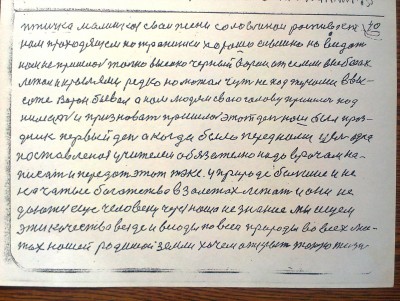 птичка малинкоя свои песни соловьиной ростивоет 30
нам проходящем по тропинки хорошо слышно но видат
нам не пришлос только высоко черный ворон от семи в небесах
летал и крыльями редко помахал чут не под тучами в вы-
соте Ворон бывал а нам людям свою голову пришлос под
нимат и признават пришлос этот ден наш был празд-
дник первый ден а когда было перед нами
поставленоя учителем обязателно надо врачам на-
писат и передат этот тже. у природе болшие и не
качатые богатства в залежах лежат и они не
даютси еще человеку через наше незнание мы ищем
эти качество везде и всюду по всей природы во всех мес-
тах нашей родимой земли хочем открыт такую жизн